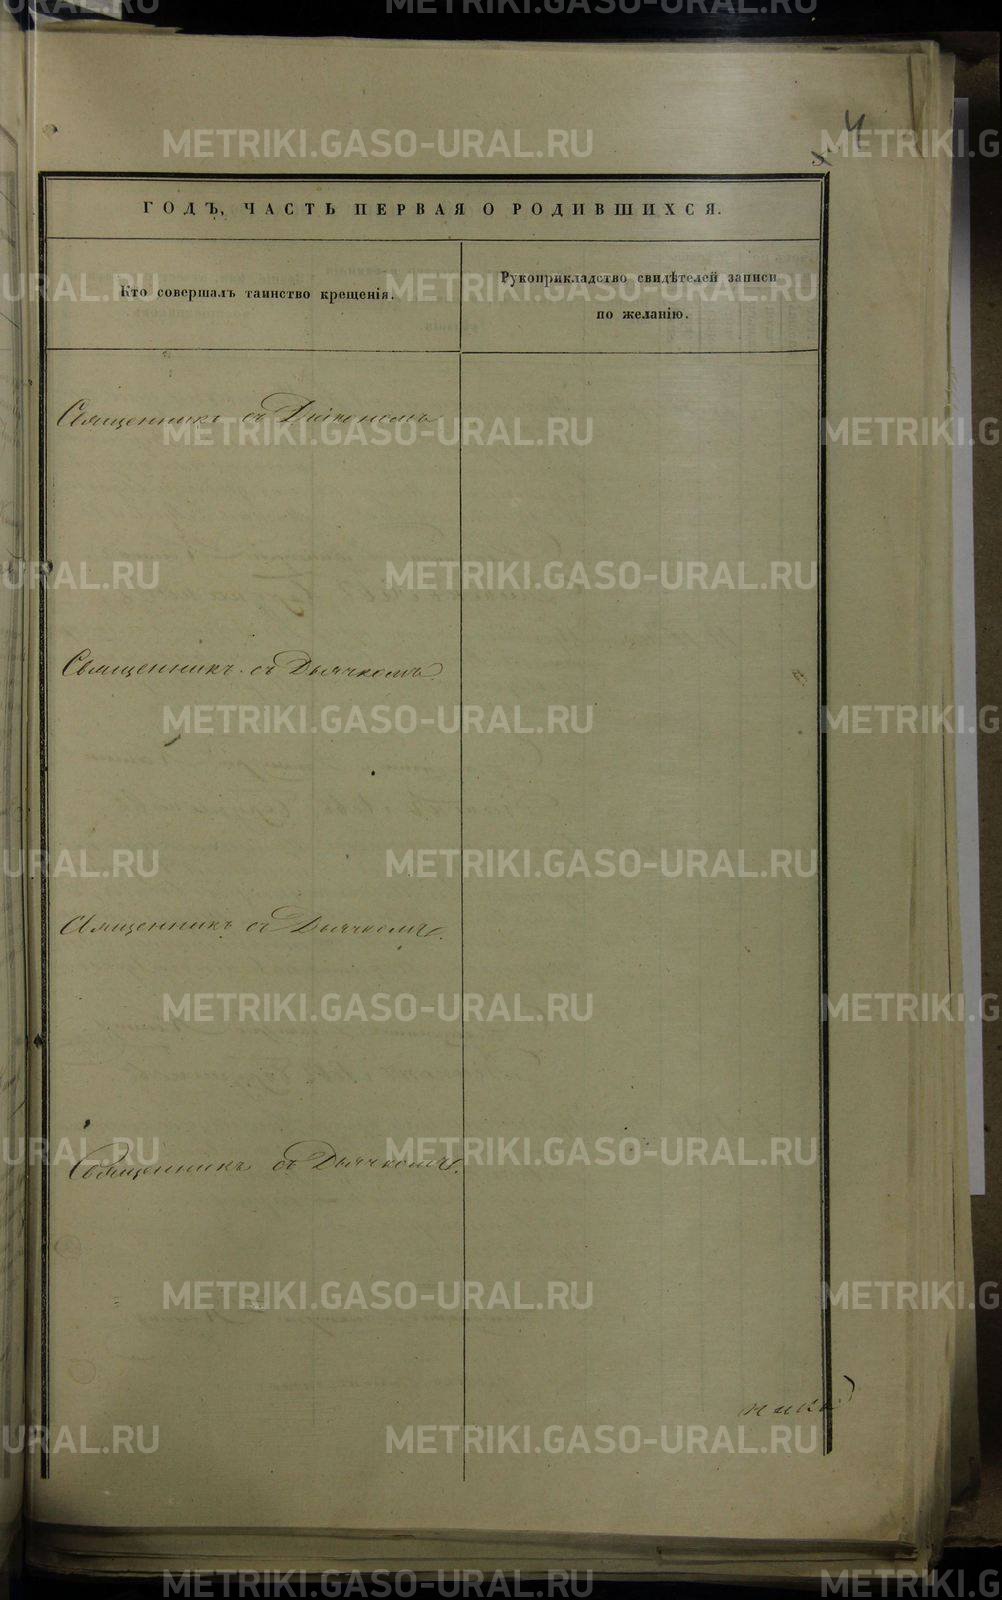 4
ГОДЪ, ЧАСТЬ ПЕРВАЯ О РОДИВШИХСЯ.
Кто совершалъ таинство крещенія.
Рукоприкладство свидѣтелей записи
по желанію.
Священникъ съ Діакономъ
Священникъ съ Дьячкомъ.
Священникъ съ Дьячкомъ.
Священникъ съ Дьячкомъ.
METRIKI.GASO-URAL.RU